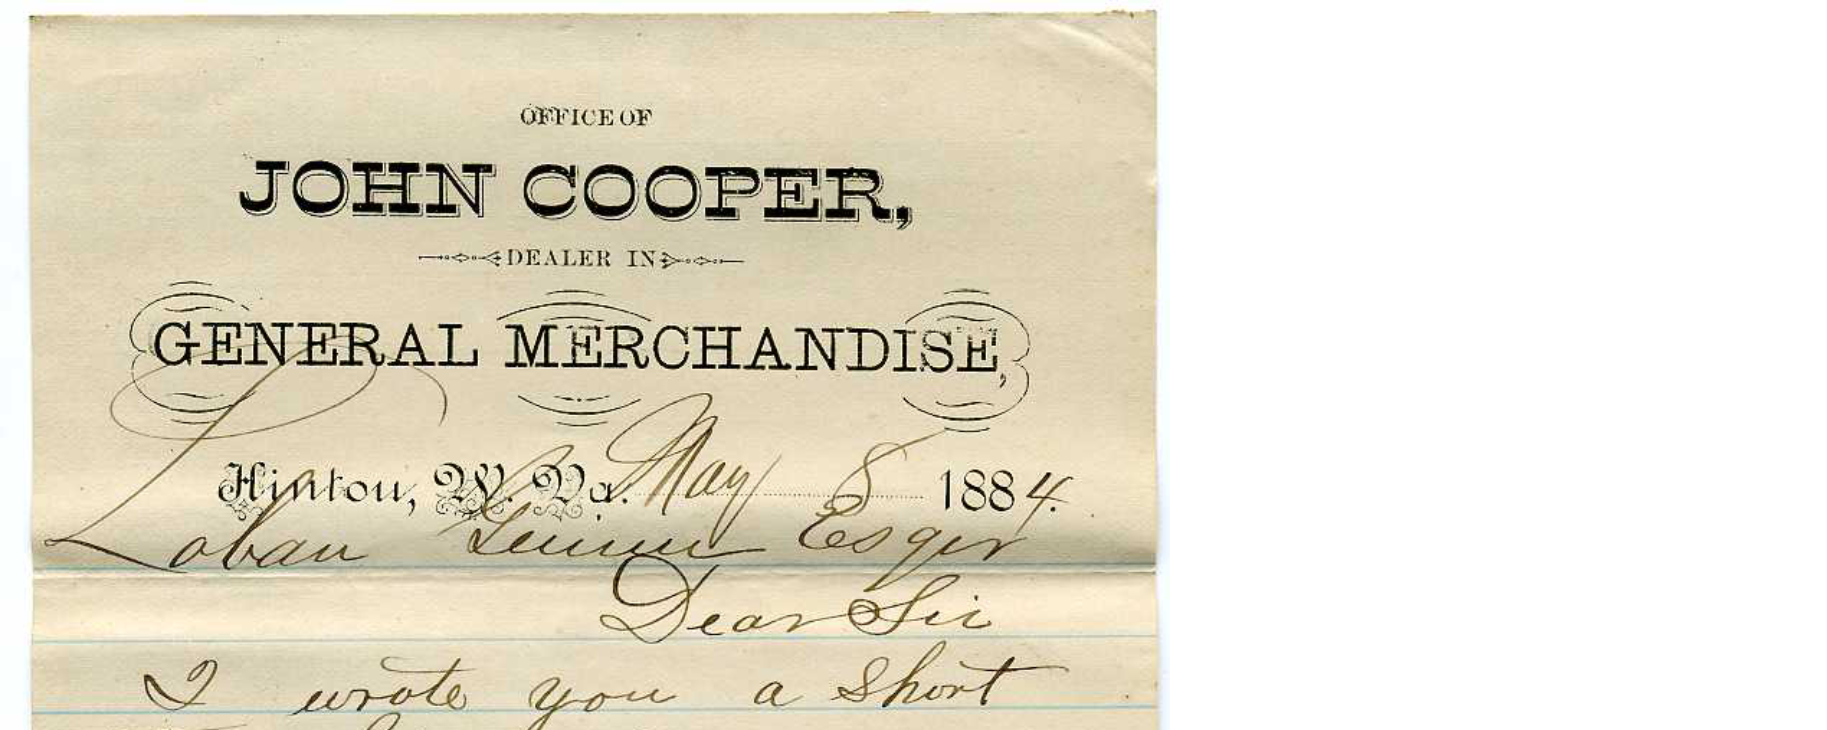 OFFICE OF
JOHN COOPER,
DEALER IN
GENERAL MERCHANDISE,
Hinton, W. Va. May 8 1884.
Loban Esqir
Dear Sir
I wrote you a short